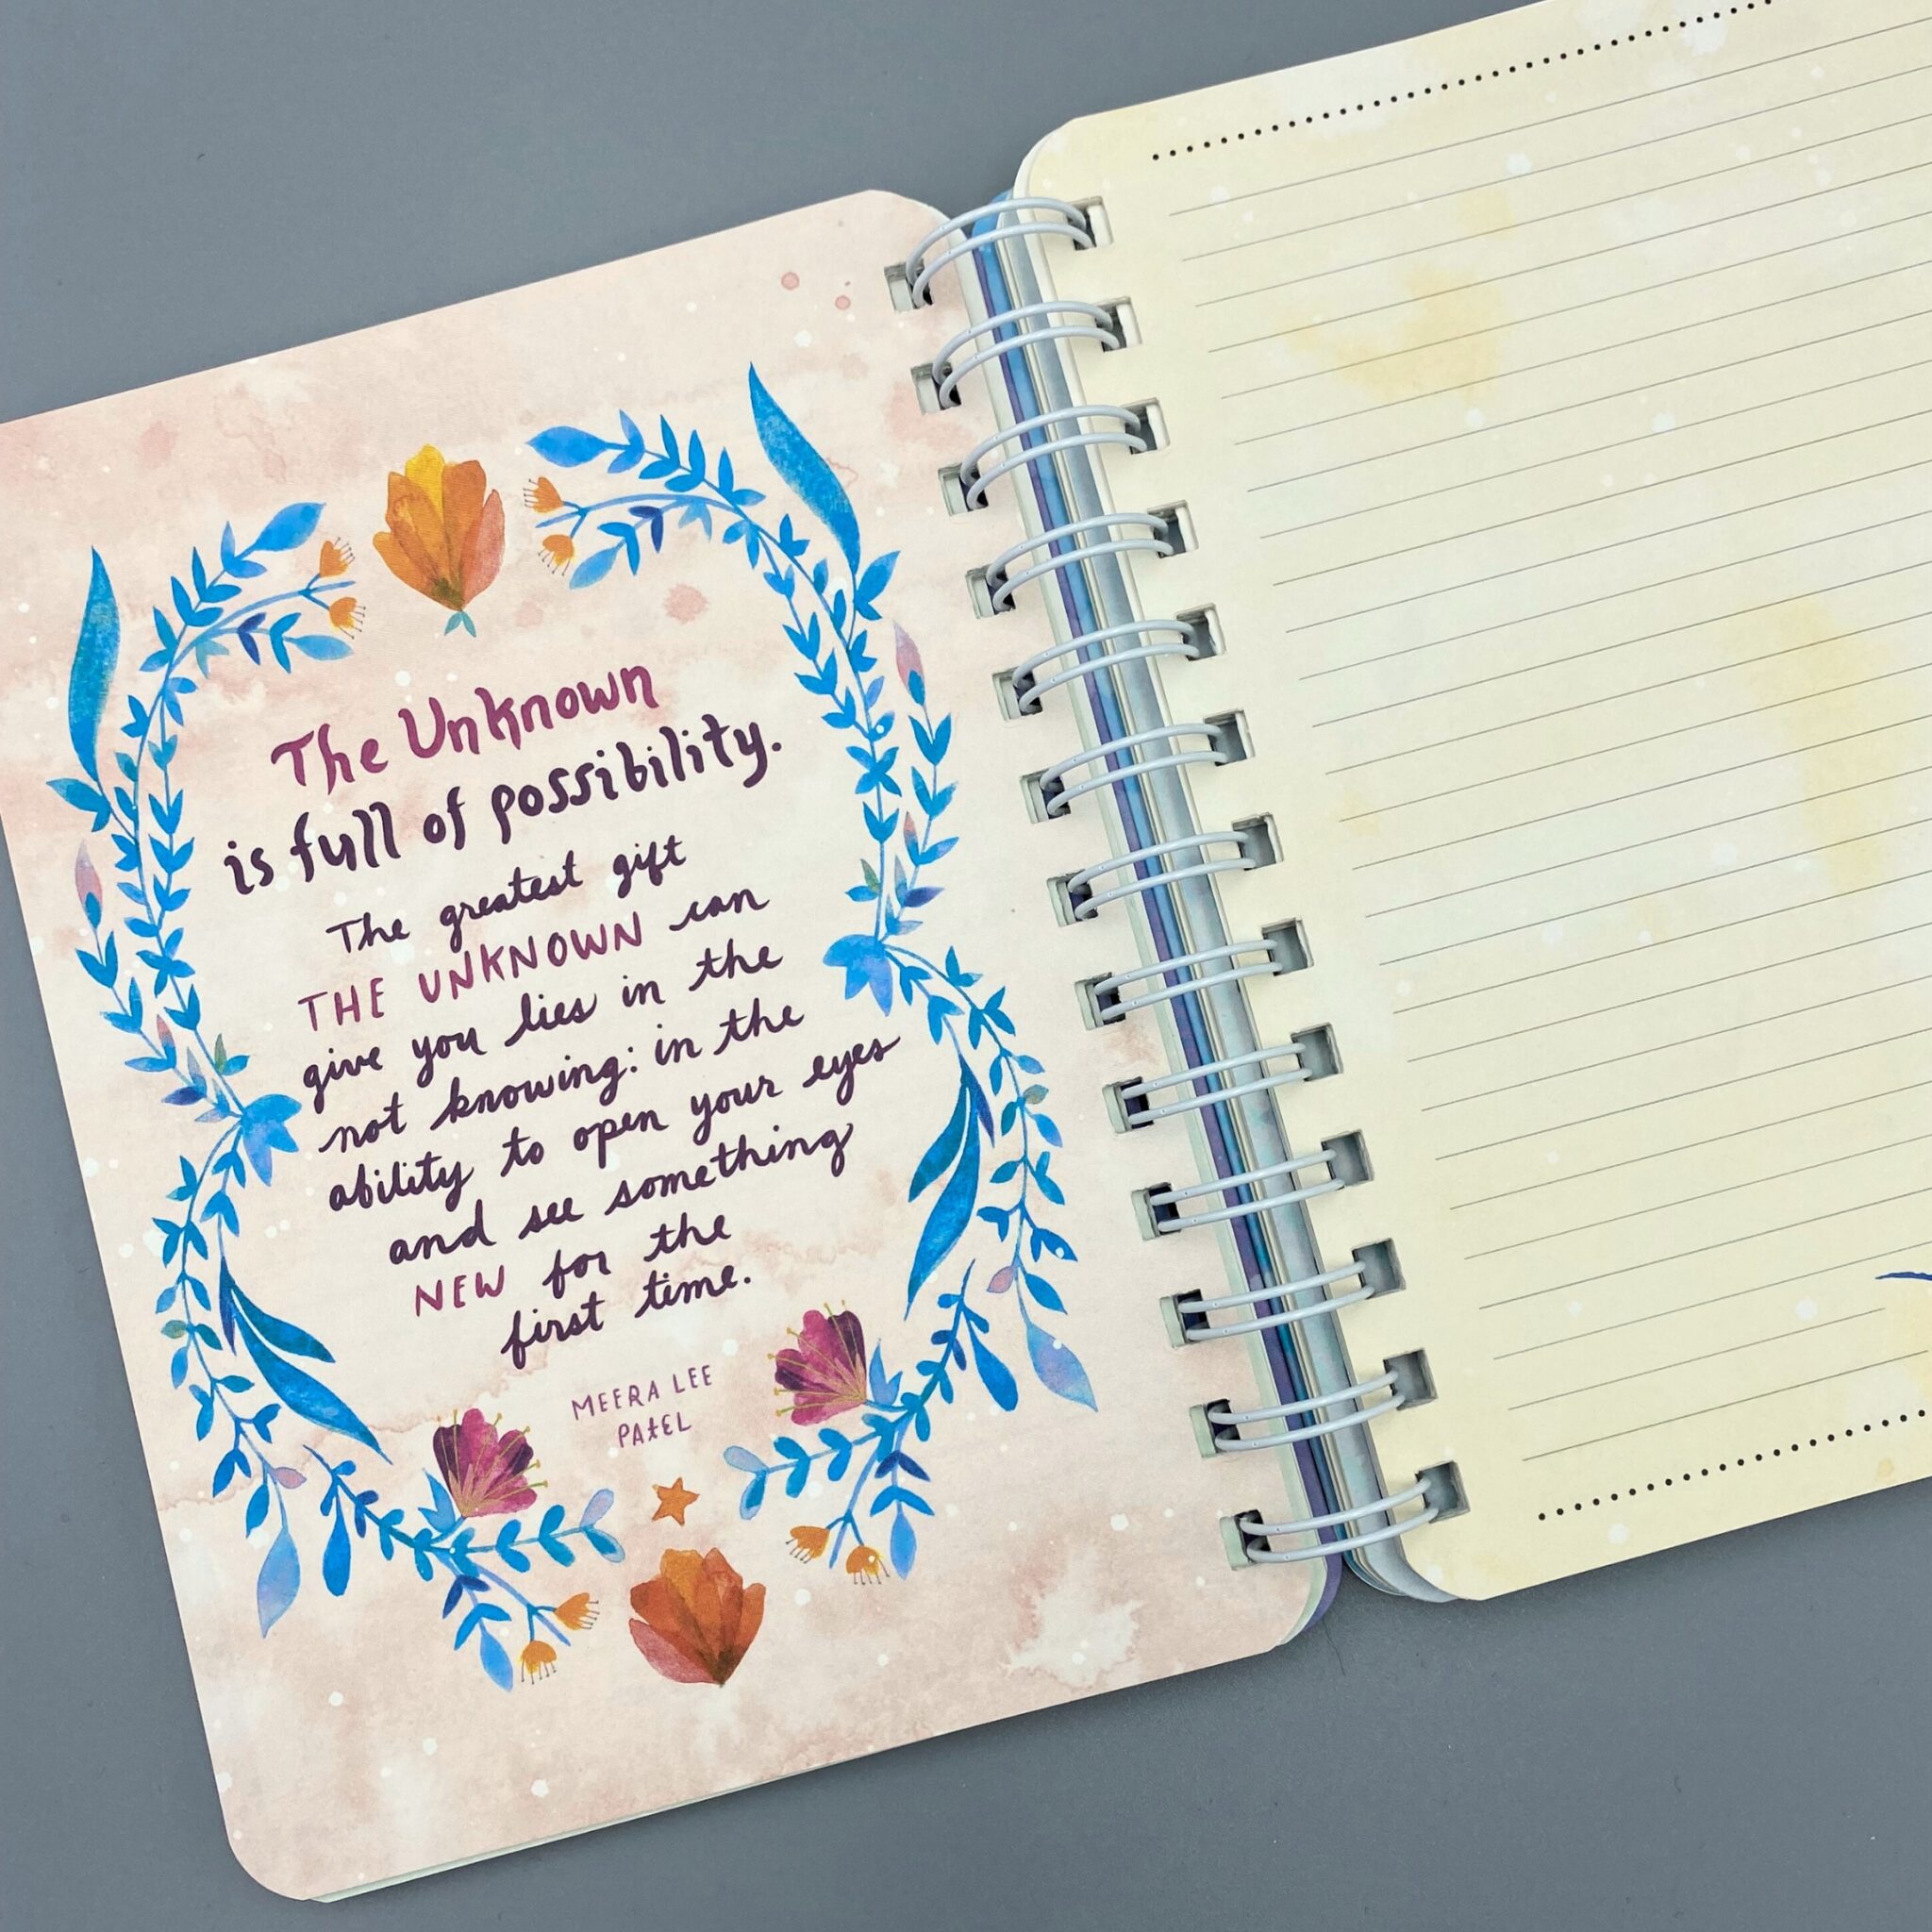 The Unknown
is full of possibility.
The greatest gift
THE UNKNOWN can
give you lies in the
not knowing: in the
ability to open your eyes
and see something
NEW for the
first time.
MEERA LEE
PATEL